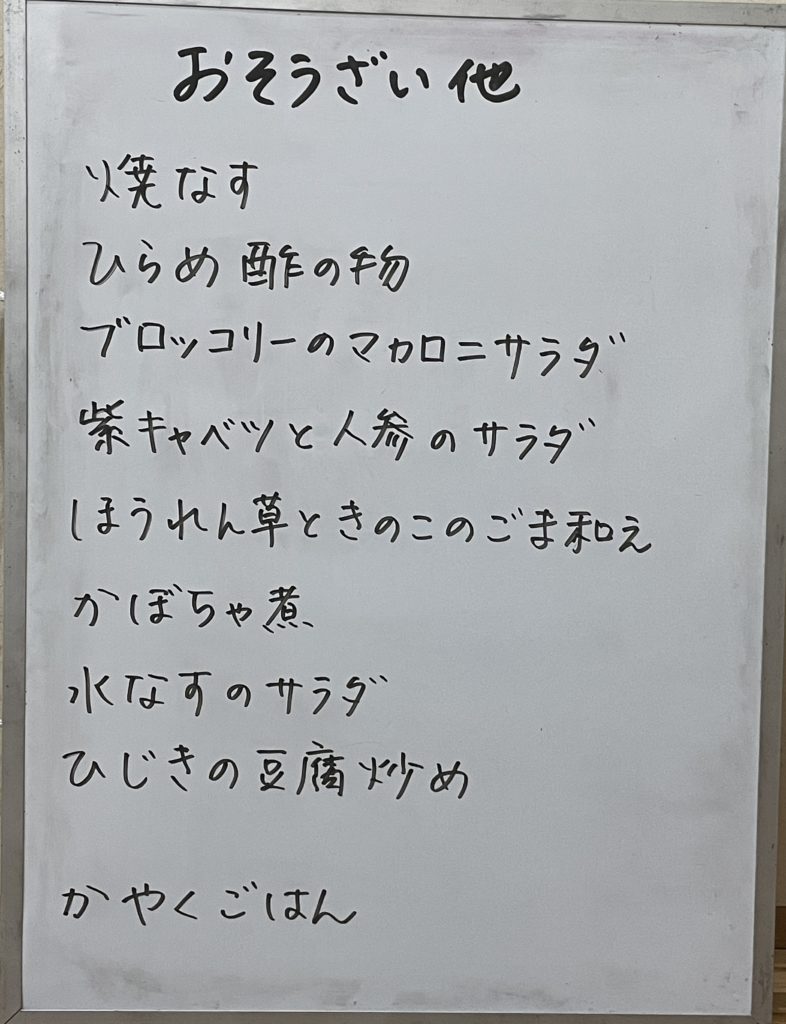 おそうざい他
焼なす
ひらめ酢の物
ブロッコリーのマカロニサラダ
紫キャベツと人参のサラダ
ほうれん草ときのこのごま和え
かぼちゃ煮
水なすのサラダ
ひじきの豆腐炒め
かやくごはん